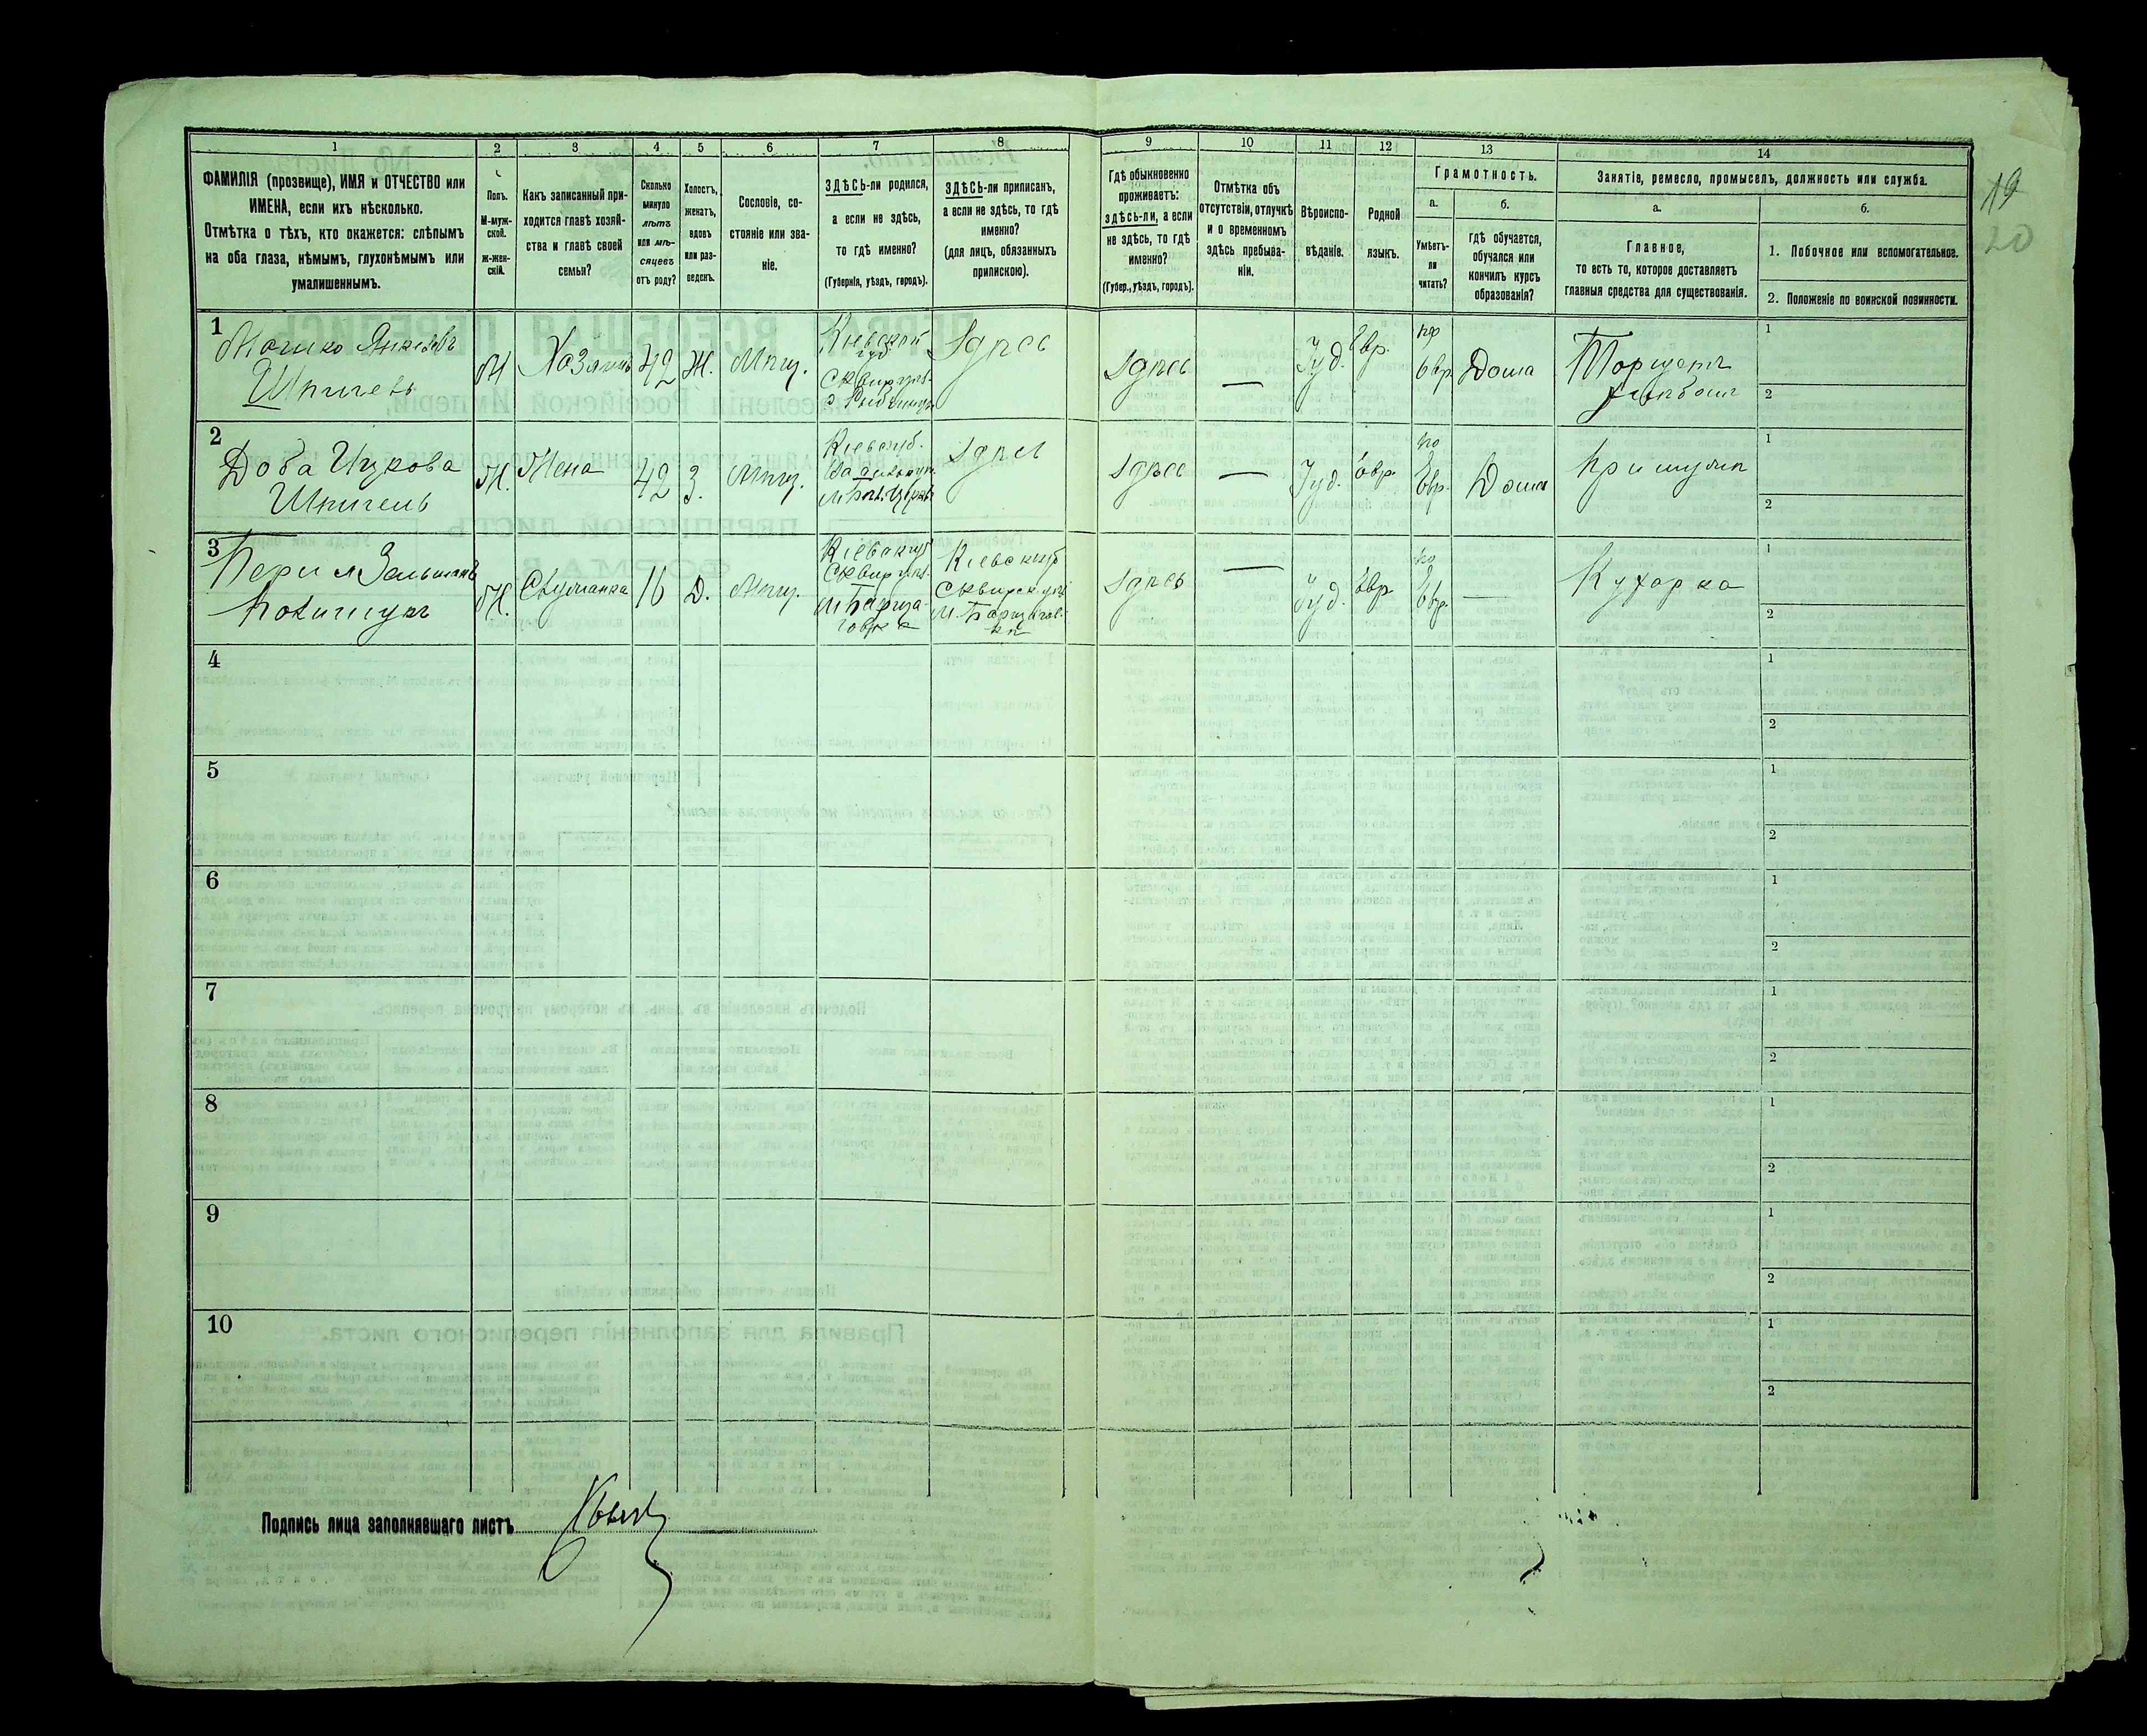 1 2 3 4 5 6 7 8 9 10 11 12 13 14
ФАМИЛІЯ (прозвище), ИМЯ и ОТЧЕСТВО или ИМЕНА, если ихъ нѣсколько.
Отмѣтка о тѣхъ, кто окажется: слѣпымъ на оба глаза, нѣмымъ, глухонѣмымъ или умалишеннымъ.
Полъ.
М-мужской.
Ж-женскій.
Какъ записанный приходится главѣ хозяйства и главѣ своей семьи?
Сколько минуло лѣтъ или мѣсяцевъ отъ роду?
Холостъ, женатъ, вдовъ или разведенъ.
Сословіе, состояніе или званіе.
ЗДѢСЬ-ли родился, а если не здѣсь, то гдѣ именно?
(Губернія, уѣздъ, городъ).
ЗДѢСЬ-ли приписанъ, а если не здѣсь, то гдѣ именно?
(для лицъ, обязанныхъ припискою).
Гдѣ обыкновенно проживаетъ: здѣсь-ли, а если не здѣсь, то гдѣ именно?
(Губер., уѣздъ, городъ).
Отмѣтка объ отсутствіи, отлучкѣ и о временномъ здѣсь пребываніи.
Вѣроисповѣданіе.
Родной языкъ.
Грамотность.
а.
Умѣетъ-ли читать?
б.
гдѣ обучается, обучался или кончилъ курсъ образованія?
Занятіе, ремесло, промыселъ, должность или служба.
а.
Главное,
то есть то, которое доставляетъ главныя средства для существованія.
б.
1. Побочное или вспомогательное.
2. Положеніе по воинской повинности.
19
20
1
Мошко Янкелевъ
Шпигель
М
Хозяинъ
42
Ж.
Мѣщ.
Кіевской
губ.
Сквир. уѣз.
Здѣсь
Здѣсь
—
Іуд.
Евр.
по
Евр
Дома
Торгуетъ
1
2
2
Доба Ицкова
Шпигель
Ж.
Жена
42
З.
Мѣщ.
Кіев. губ.
м. Бѣл. Церковь
Здѣсь
Здѣсь
—
Іуд.
Евр.
по
Евр.
Дома
При мужѣ
1
2
3
Перля Зельманъ
Ж.
Служанка
16
Д.
Мѣщ.
Кіевск. губ
Сквир. уѣз.
Кіевск. губ
Сквирск. уѣз
Здѣсь
—
Іуд.
Евр
по
Евр.
—
Кухарка
1
2
4
1
2
5
1
2
6
1
2
7
1
2
8
1
2
9
1
2
10
1
2
Подпись лица заполнявшаго листъ